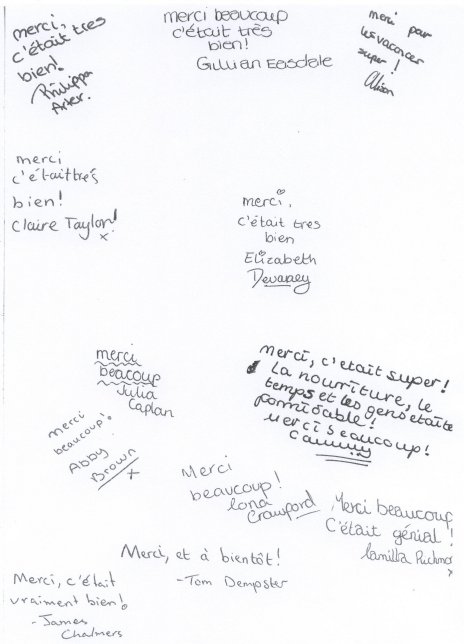 merci,
c'était tres
bien!
Philippa
merci beaucoup
c'était très
bien!
Gillian Easdale
merci pour
les vacances
super!
Alison
merci
c'était trés
bien!
Claire Taylor!
x
merci,
c'était tres
bien
Elizabeth
Devaney
merci
beacoup
Julia
Caplan
merci, c'etait super!
La nourriture, le
temps et les gens étaite
formidable!
merci beaucoup!
merci
beaucoup!
Abby
Brown
x
Merci
beaucoup!
Iona
Crawford
Merci beaucoup
C'était génial!
Camilla
x
Merci, et à bientôt!
- Tom Dempster
Merci, c'était
vraiment bien!
- James
Chalmers